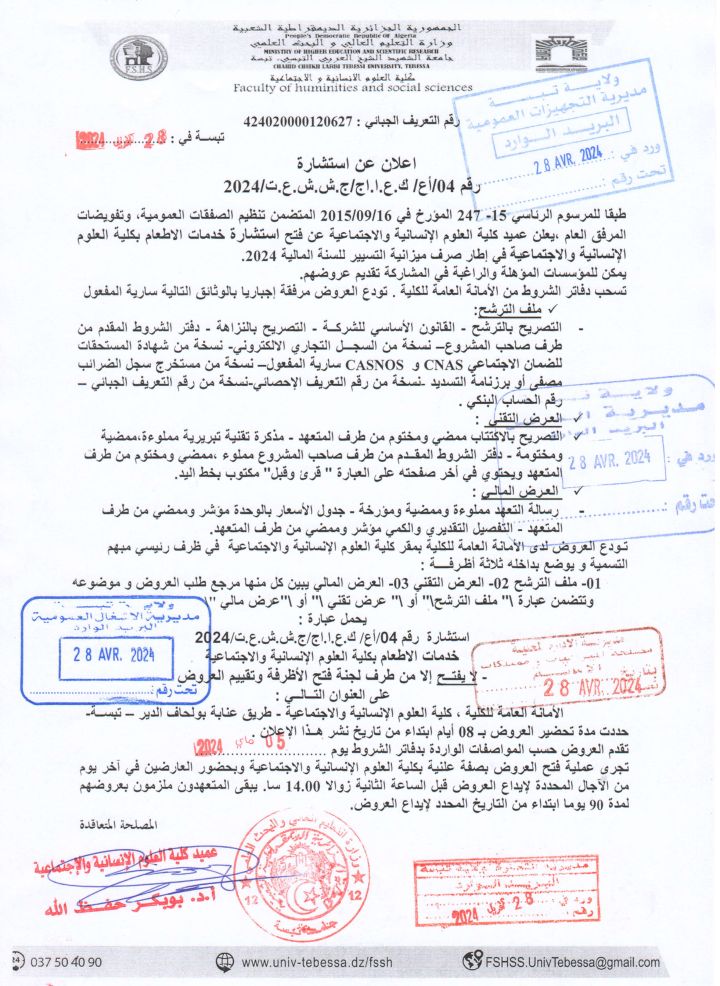 الجمهورية الجزائرية الديمقراطية الشعبية
People's Democratic Republic Of Algeria
وزارة التعليم العالي و البحث العلمي
MINISTRY OF HIGHER EDUCATION AND SCIENTIFIC RESEARCH
جامعة الشهيد الشيخ العربي التبسي، تبسة
CHAHID CHEIKH LARBI TEBESSI UNIVERSITY, TEBESSA
كلية العلوم الانسانية و الاجتماعية
Faculty of huminities and social sciences
F.S.H.S
ولاية تبسة
مديرية التجهيزات العمومية
البريد الوارد
ورد في :
28 AVR. 2024
تحت رقم :
رقم التعريف الجبائي : 424020000120627
تبسة في : 28 أفريل 2024
اعلان عن استشارة
رقم 04/أع/ ك.ع.ا.اج/ج.ش.ش.ع.ت/2024
طبقا للمرسوم الرئاسي 15- 247 المؤرخ في 2015/09/16 المتضمن تنظيم الصفقات العمومية، وتفويضات
المرفق العام ،يعلن عميد كلية العلوم الإنسانية والاجتماعية عن فتح استشارة خدمات الاطعام بكلية العلوم
الإنسانية والاجتماعية في إطار صرف ميزانية التسيير للسنة المالية 2024.
يمكن للمؤسسات المؤهلة والراغبة في المشاركة تقديم عروضهم.
تسحب دفاتر الشروط من الأمانة العامة للكلية . تودع العروض مرفقة إجباريا بالوثائق التالية سارية المفعول
✓ ملف الترشح:
- التصريح بالترشح - القانون الأساسي للشركة - التصريح بالنزاهة - دفتر الشروط المقدم من
طرف صاحب المشروع– نسخة من السجل التجاري الالكتروني- نسخة من شهادة المستحقات
للضمان الاجتماعي CNAS و CASNOS سارية المفعول– نسخة من مستخرج سجل الضرائب
مصفى أو برزنامة التسديد -نسخة من رقم التعريف الإحصائي-نسخة من رقم التعريف الجبائي –
رقم الحساب البنكي .
ولاية تبسة
البريد الوارد
ورد في :
28 AVR. 2024
تحت رقم :
✓ العرض التقني :
التصريح بالاكتتاب ممضي ومختوم من طرف المتعهد - مذكرة تقنية تبريرية مملوءة،ممضية
ومختومة - دفتر الشروط المقدم من طرف صاحب المشروع مملوء ،ممضي ومختوم من طرف
المتعهد ويحتوي في أخر صفحته على العبارة " قرئ وقبل" مكتوب بخط اليد.
✓ العرض المالي :
- رسالة التعهد مملوءة وممضية ومؤرخة - جدول الأسعار بالوحدة مؤشر وممضي من طرف
المتعهد - التفصيل التقديري والكمي مؤشر وممضي من طرف المتعهد.
تودع العروض لدى الأمانة العامة للكلية بمقر كلية العلوم الإنسانية والاجتماعية في ظرف رئيسي مبهم
التسمية و يوضع بداخله ثلاثة أظرفة :
01- ملف الترشح 02- العرض التقني 03- العرض المالي يبين كل منها مرجع طلب العروض و موضوعه
وتتضمن عبارة \" ملف الترشح\" أو \" عرض تقني \" أو \"عرض مالي \"
يحمل عبارة :
استشارة رقم 04/أع/ ك.ع.ا.اج/ج.ش.ش.ع.ت/2024
خدمات الاطعام بكلية العلوم الإنسانية والاجتماعية
- لا يفتح إلا من طرف لجنة فتح الأظرفة وتقييم العروض
على العنوان التالي :
ولاية تبسة
مديرية الأشغال العمومية
البريد الوارد
28 AVR. 2024
تحت رقم:
28 AVR. 2024
الأمانة العامة للكلية ، كلية العلوم الإنسانية والاجتماعية - طريق عنابة بولحاف الدير – تبسة-
حددت مدة تحضير العروض بـ 08 أيام ابتداء من تاريخ نشر هذا الإعلان .
تقدم العروض حسب المواصفات الواردة بدفاتر الشروط يوم 05 ماي 2024
تجرى عملية فتح العروض بصفة علنية بكلية العلوم الإنسانية والاجتماعية وبحضور العارضين في آخر يوم
من الآجال المحددة لإيداع العروض قبل الساعة الثانية زوالا 14.00 سا. يبقى المتعهدون ملزمون بعروضهم
لمدة 90 يوما ابتداء من التاريخ المحدد لإيداع العروض.
المصلحة المتعاقدة
عميد كلية العلوم الإنسانية والاجتماعية
أ.د. بوبكر حفظ الله
12 12
28 أفريل 2024
037 50 40 90
www.univ-tebessa.dz/fssh
FSHSS.UnivTebessa@gmail.com